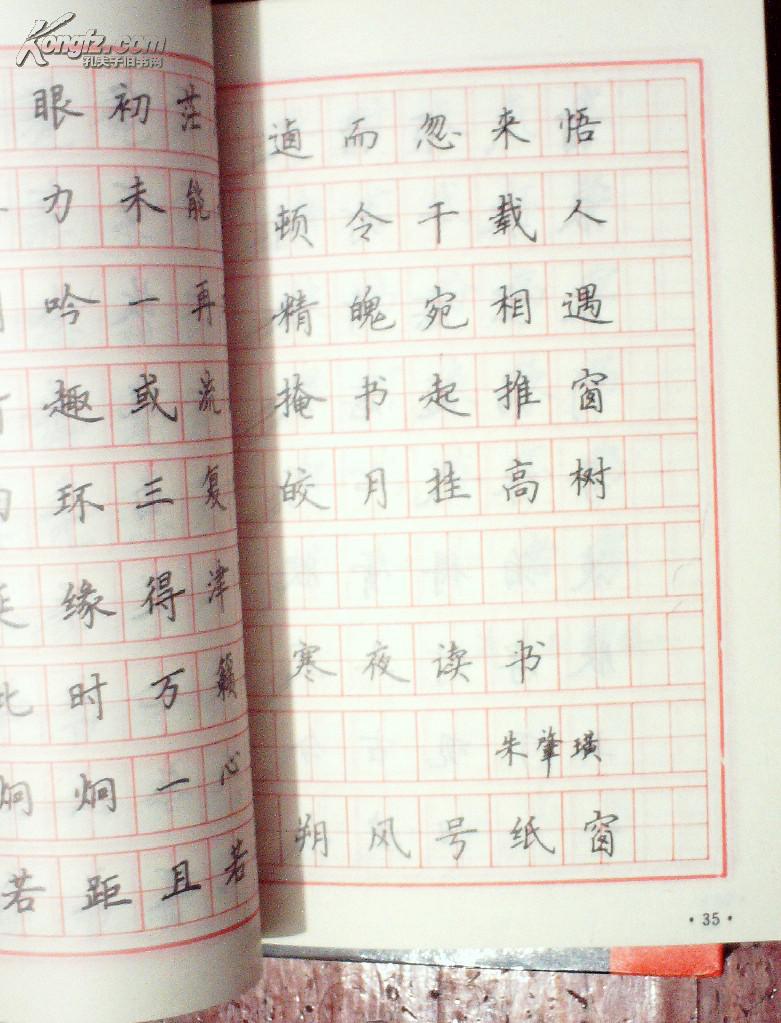 Kongfz.com
孔夫子旧书网
眼初茫
力未能
吟一再
趣或流
环三复
缘得津
时万籁
炯炯一心
若距且若
逌而忽来悟
顿令千载人
精魄宛相遇
掩书起推窗
皎月挂高树
寒夜读书
朱肇璜
朔风号纸窗
·35·